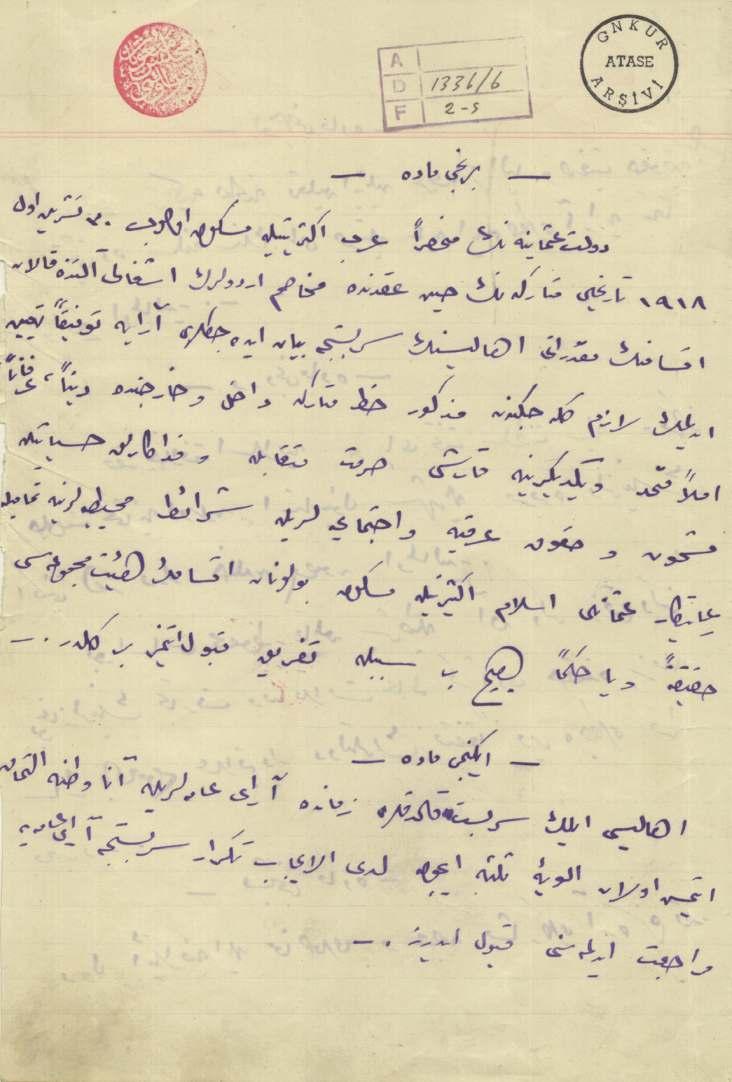 GNKUR
ATASE
ARŞİVİ
A
D 1336/6
F 2-5
— برنجی ماده —
دولت عثمانیه نك منحصراً عرب اکثریتیله مسکون اولوب ٣٠ تشرین اول
١٩١٨ تاریخلی متارکه نك حین عقدنده مخاصم اردولرك اشغالی آلتنده قالان
اقسامنك مقدراتی اهالیسنك سربستجه بیان ایده جکلری آرایه توفیقاً تعیین
ایدلمك لازم کله جکندن مذکور خط متارکه داخل و خارجنده دیناً، عرفاناً
املاً متحد و یکدیکرینه قارشی حرمت متقابله و فداکارلق حسیاتیله
مشحون و حقوق عرقیه و اجتماعیه لریله شرائط محیطیه لرینه تمامیله
رعایتکار عثمانلی اسلام اکثریتیله مسکون بولونان اقسامك هیئت مجموعه سی
حقیقةً ویا حکماً هیچ بر سببله تفریق قبول ایتمز بر کلدر .—
— ایکنجی ماده —
اهالیسی ایلك سربست قالدقلری زمانده آرای عامه لریله آنا وطنه التحاق
ایتمش اولان الویهٔ ثلثه ایچون لدی الایجاب تکرار سربستجه آرای عامه یه
مراجعت ایدلمه سنی قبول ایدرز .—